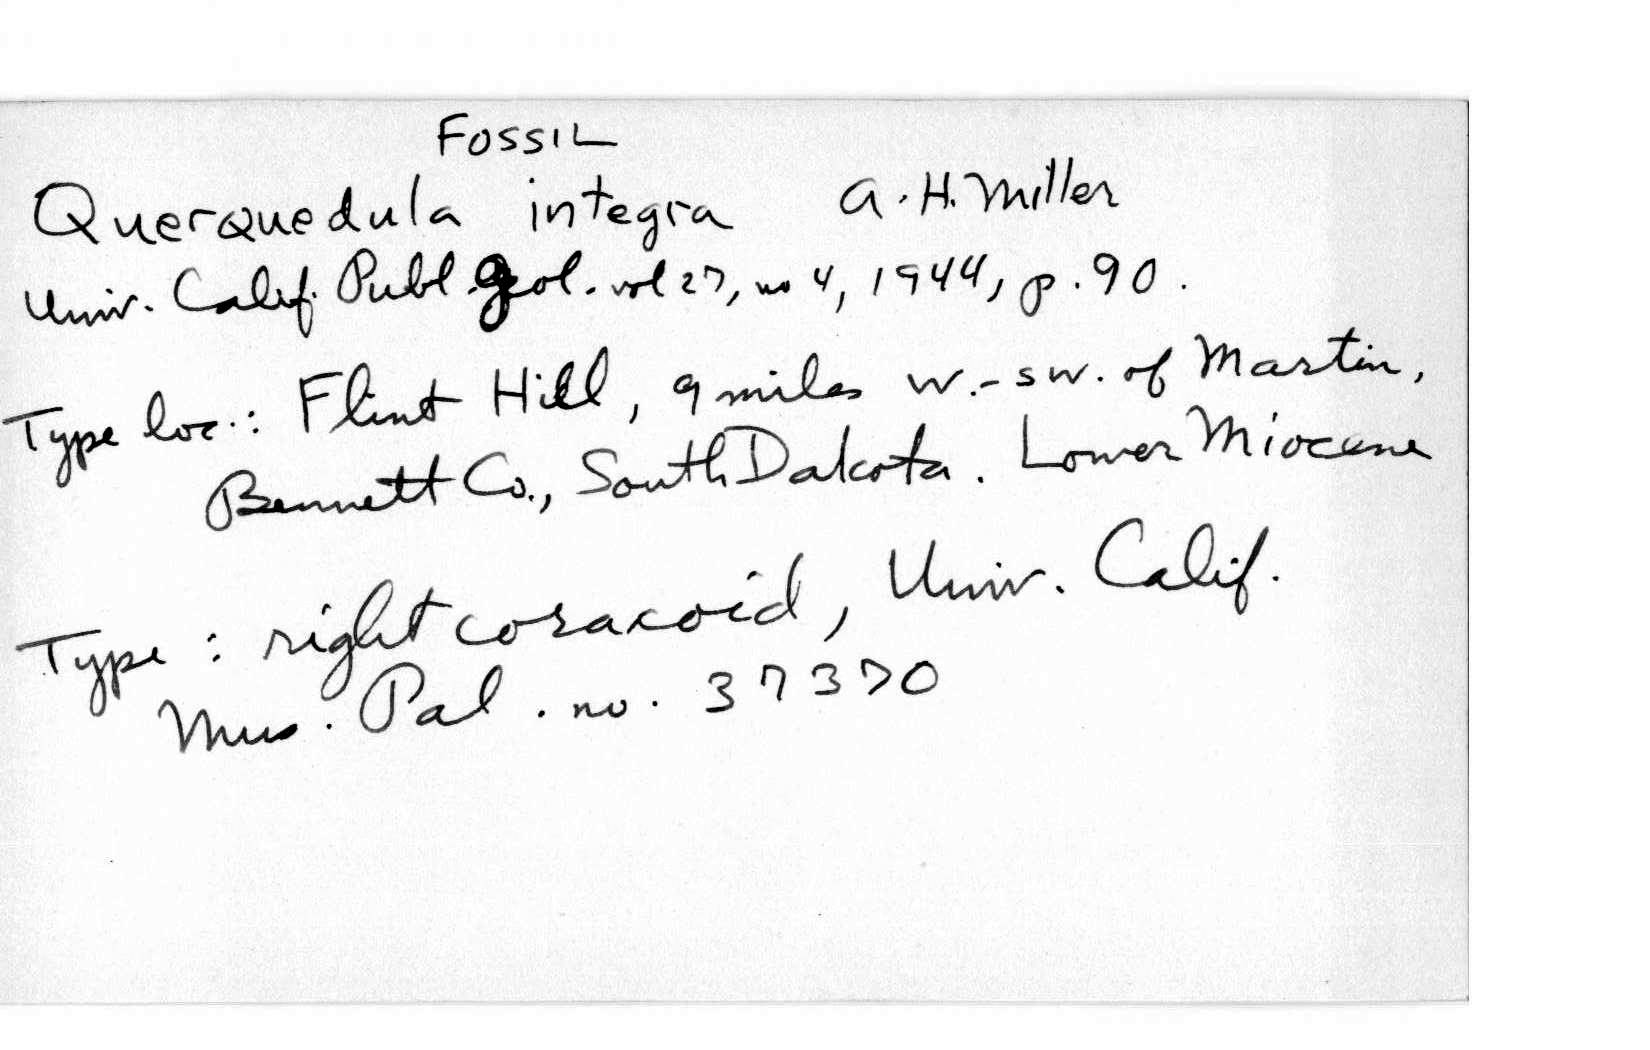 FOSSIL
Querquedula integra A. H. Miller
Univ. Calif. Publ. Geol. vol 27, no 4, 1944, p. 90.
Type loc.: Flint Hill, 9 miles w.-sw. of Martin,
Bennett Co., South Dakota. Lower Miocene
Type: right coracoid, Univ. Calif.
Mus. Pal. no. 37370